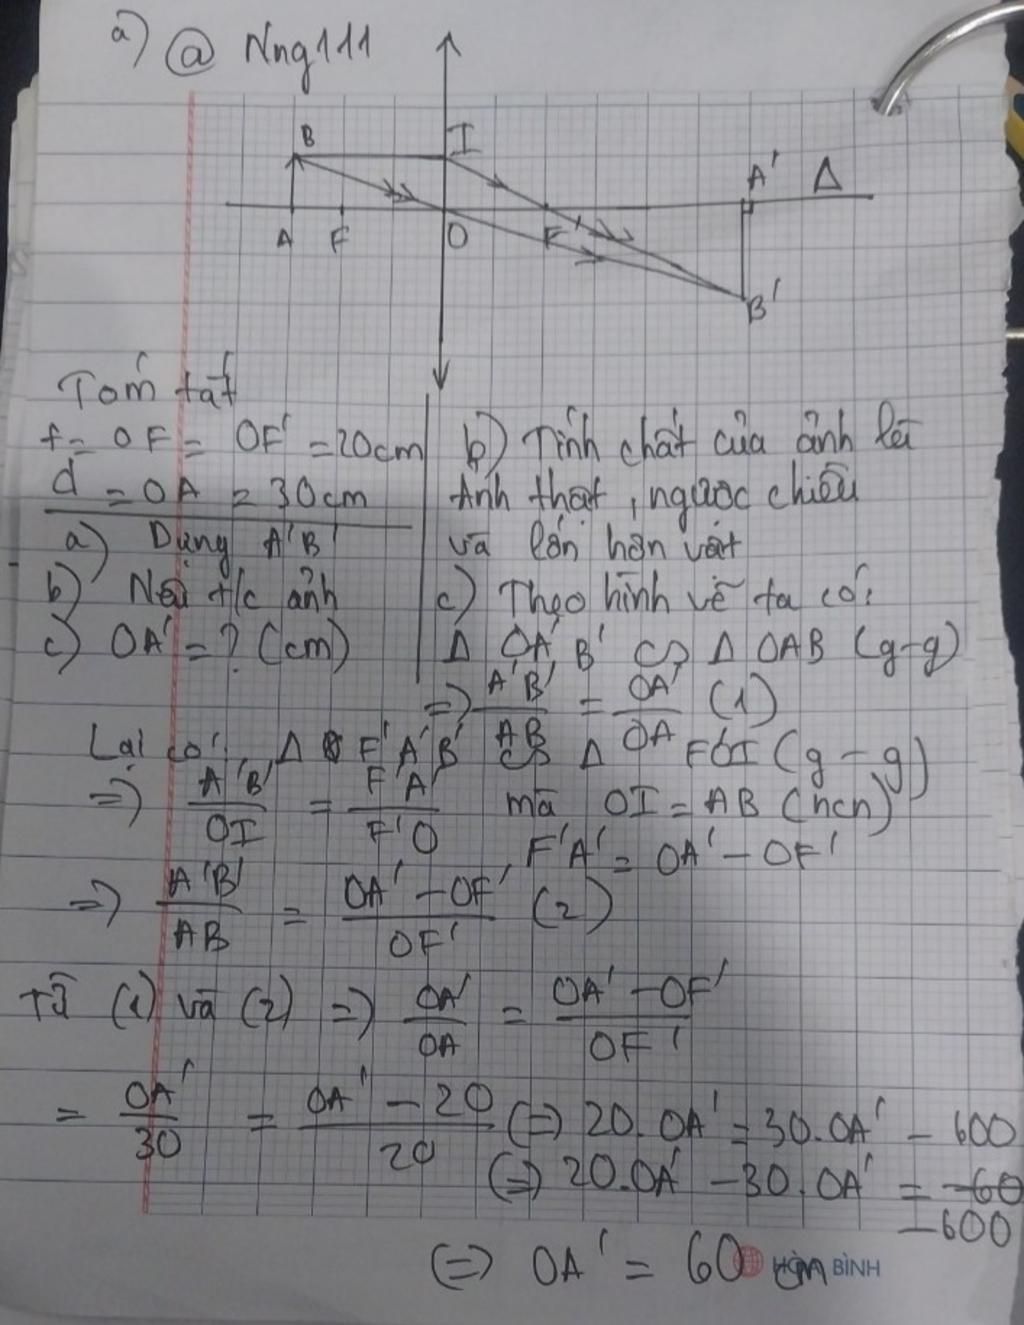 a) @ Nng111
B I
A' Δ
A F O F'
B'
Tóm tắt
f = OF = OF' = 20cm
d = OA = 30cm
a) Dựng A'B'
b) Nêu t/c ảnh
c) OA' = ? (cm)
b) Tính chất của ảnh là
Ảnh thật, ngược chiều
và lớn hơn vật
c) Theo hình vẽ ta có:
Δ OA'B' ∽ Δ OAB (g-g)
=> A'B'/AB = OA'/OA (1)
Lại có: Δ F'A'B' ∽ Δ F'OI (g-g)
=> A'B'/OI = F'A'/F'O mà OI = AB (hcn)
F'A' = OA' - OF'
=> A'B'/AB = OA' - OF'/OF' (2)
Từ (1) và (2) => OA'/OA = OA' - OF'/OF'
= OA'/30 = OA' - 20/20 (=) 20.OA' = 30.OA' - 600
(=) 20.OA' - 30.OA' = -60
-600
(=) OA' = 60 cm
HÒA BÌNH